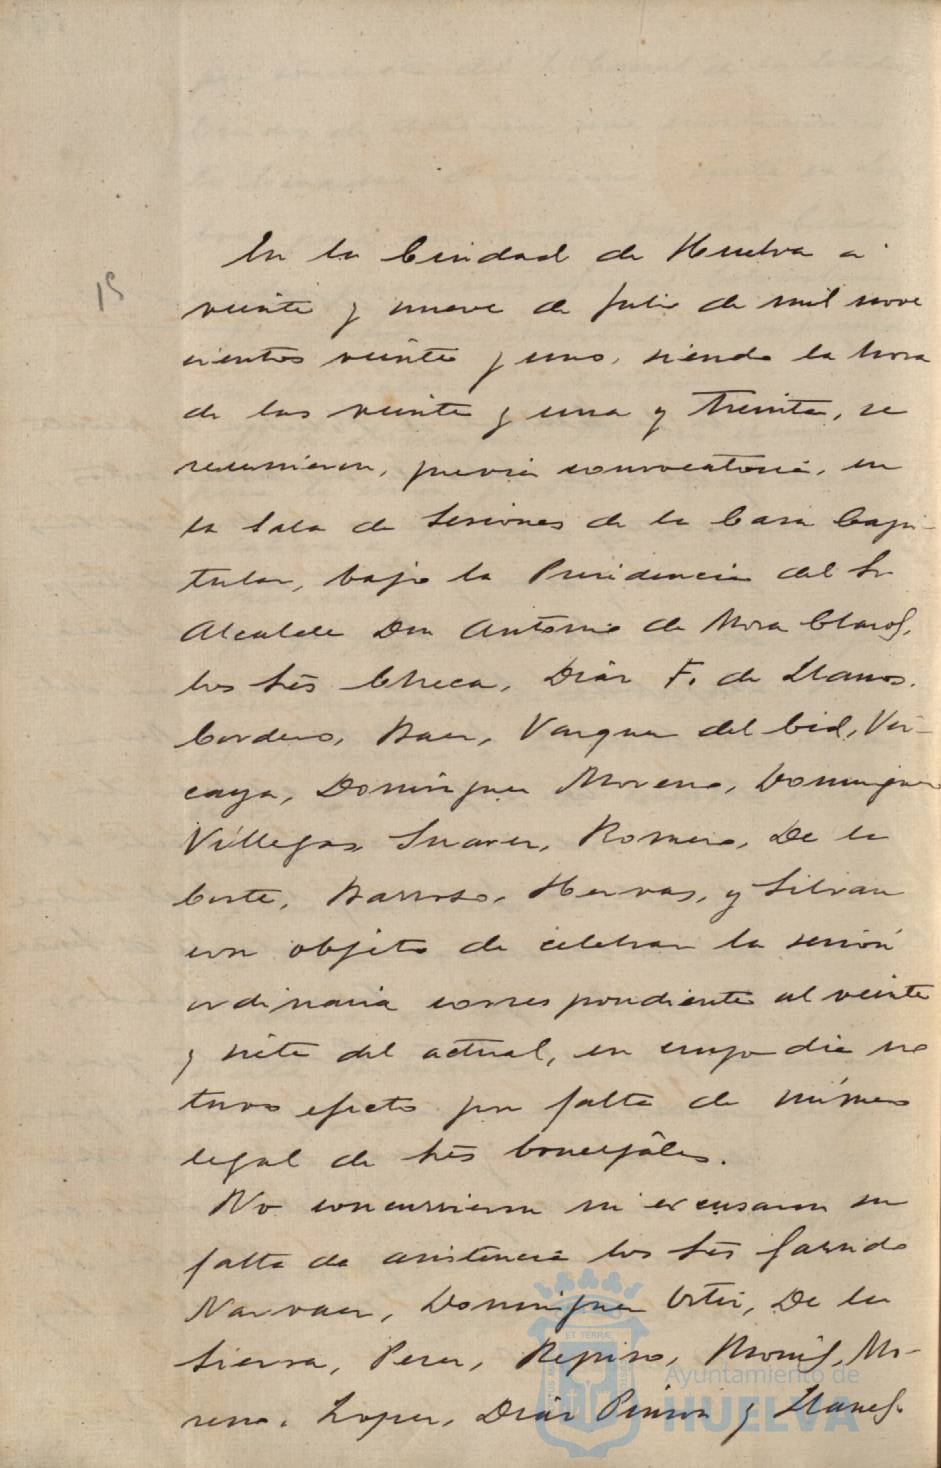 En la Ciudad de Huelva a
15
veinte y nueve de Julio de mil nove
cientos veinte y uno, siendo la hora
de las veinte y una y treinta, se
reunieron, previa convocatoria, en
la Sala de Sesiones de la Casa Capi-
tular, bajo la Presidencia del Sr
Alcalde Don Antonio de Mora Claros,
los Srês Checa, Diaz F. de Llanos,
Cordero, Baez, Vazquez del Cid, Viz-
caya, Dominguez Moreno, Dominguez
Villegas, Suarez, Romero, De la
Corte, Barroso, Hervas, y Silvan
con objeto de celebrar la sesión
ordinaria correspondiente al veinte
y siete del actual, en cuyo dia no
tuvo efecto por falta de número
legal de Srês Concejâles.
No concurrieron ni excusaron su
falta de asistencia los Srês Garrido
Narvaez, Dominguez Ortiz, De la
Sierra, Perez, Repiso, Monís, Mo-
reno, Lopez, Diáz Pinzon y Llanes.
ET TERRAE
Ayuntamiento de
HUELVA